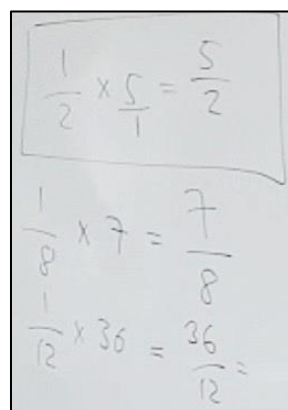 1/2 × 5/1 = 5/2
1/8 × 7 = 7/8
1/12 × 36 = 36/12 =